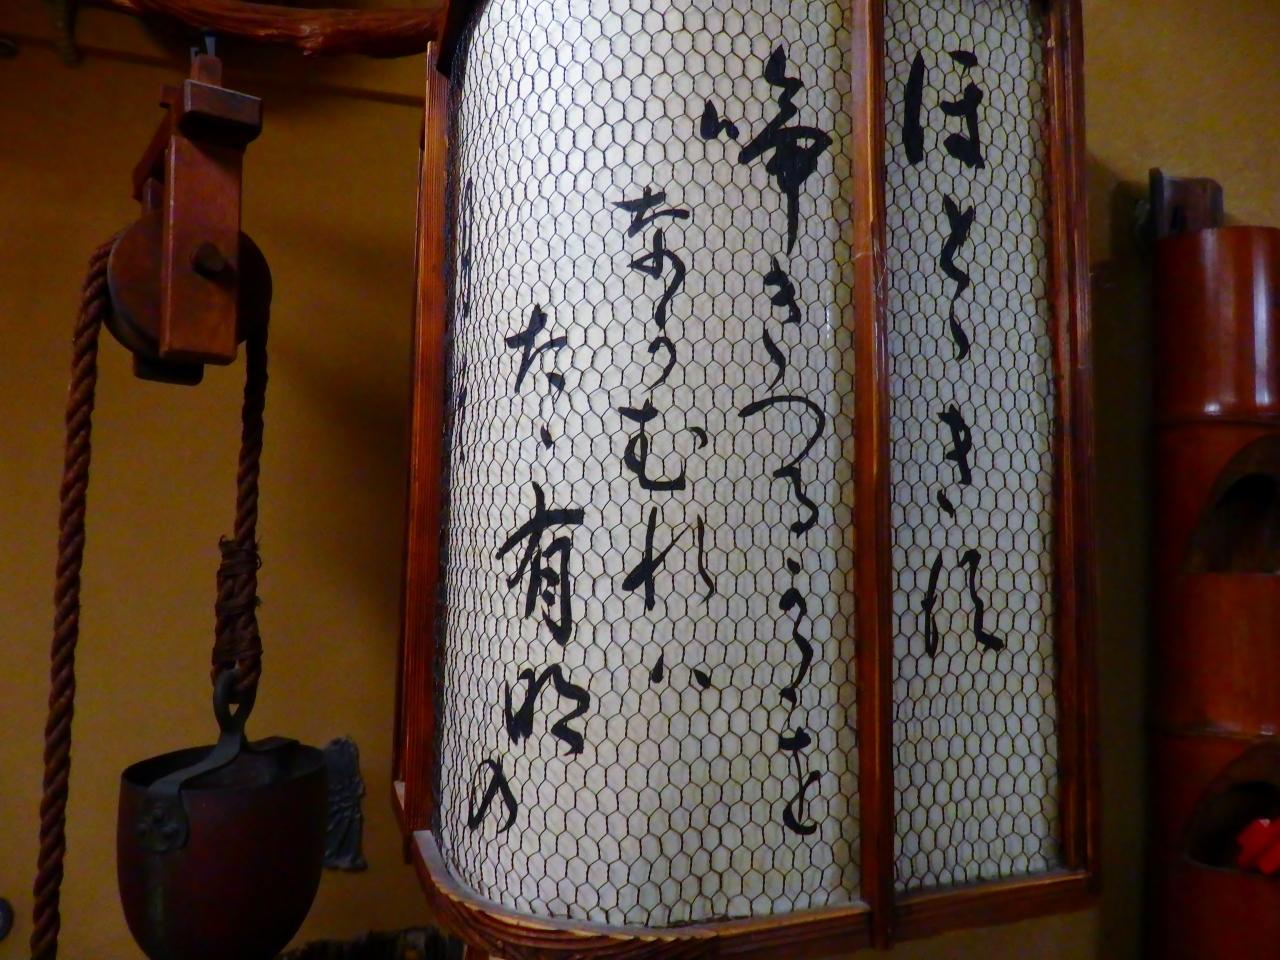 ほとゝぎす
啼きつるかたを
ながむれハ
たゝ有明の